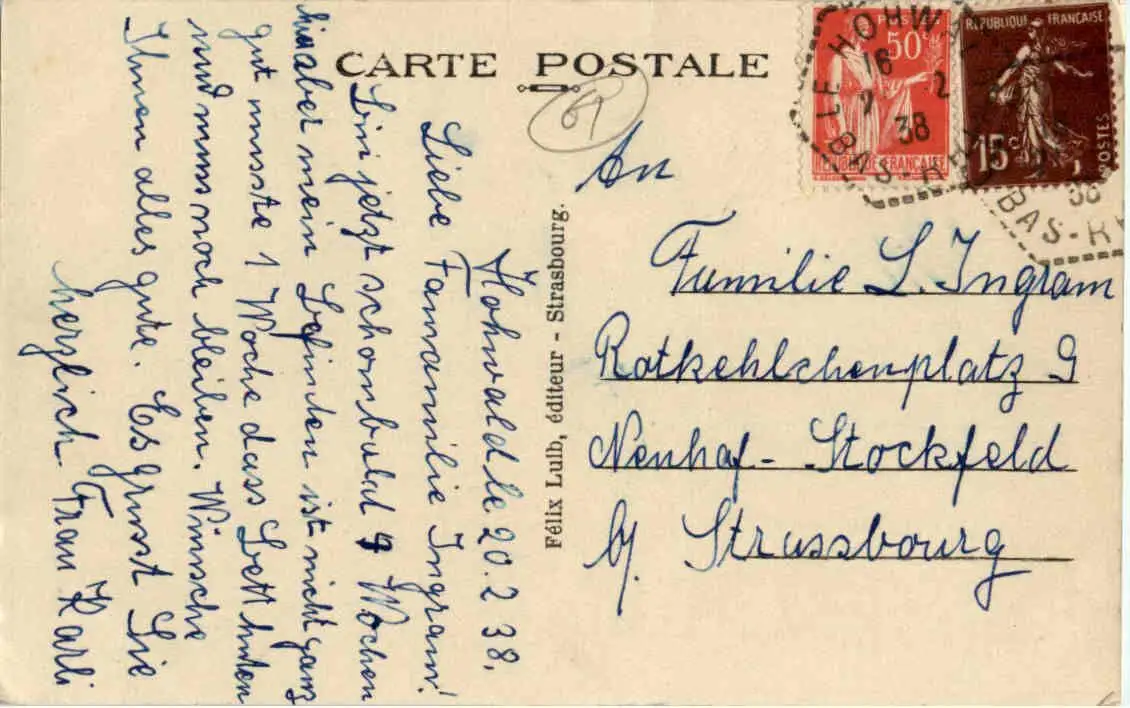 CARTE POSTALE
61
Hohwald le 20. 2 38.
Liebe Famamilie Ingram!
Bin jetzt schon bald 9 Wochen
hier aber mein Befinden ist nicht ganz
gut musste 1 Woche dass Bett hüten
und muss noch bleiben. Wünsche
Ihnen alles gute. Es grüsst Sie
herzlich. Frau Karli
Félix Lulb, éditeur - Strasbourg.
An
Familie L. Ingram
Rotkehlchenplatz 9
Neuhof - Stockfeld
by Strassbourg
POSTES
50c
RÉPUBLIQUE FRANÇAISE
RÉPUBLIQUE FRANÇAISE
15c
POSTES
LE HOHWALD
16
2
38
BAS-RHIN
38
BAS-R